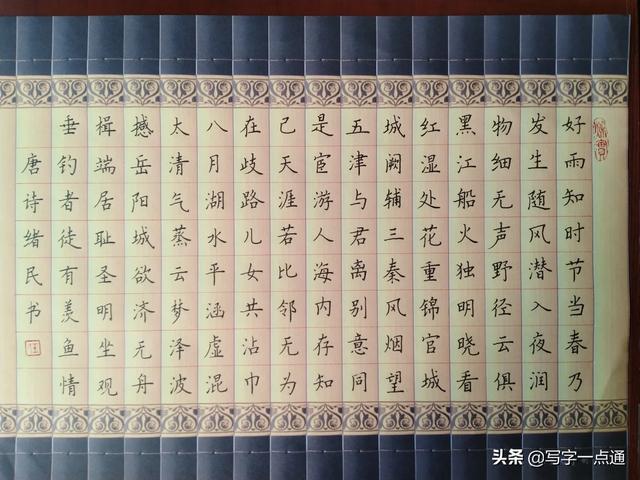 好雨知时节当春乃
发生随风潜入夜润
物细无声野径云俱
黑江船火独明晓看
红湿处花重锦官城
城阙辅三秦风烟望
五津与君离别意同
是宦游人海内存知
己天涯若比邻无为
在歧路儿女共沾巾
八月湖水平涵虚混
太清气蒸云梦泽波
撼岳阳城欲济无舟
楫端居耻圣明坐观
垂钓者徒有羡鱼情
唐诗绪民书
头条 @写字一点通